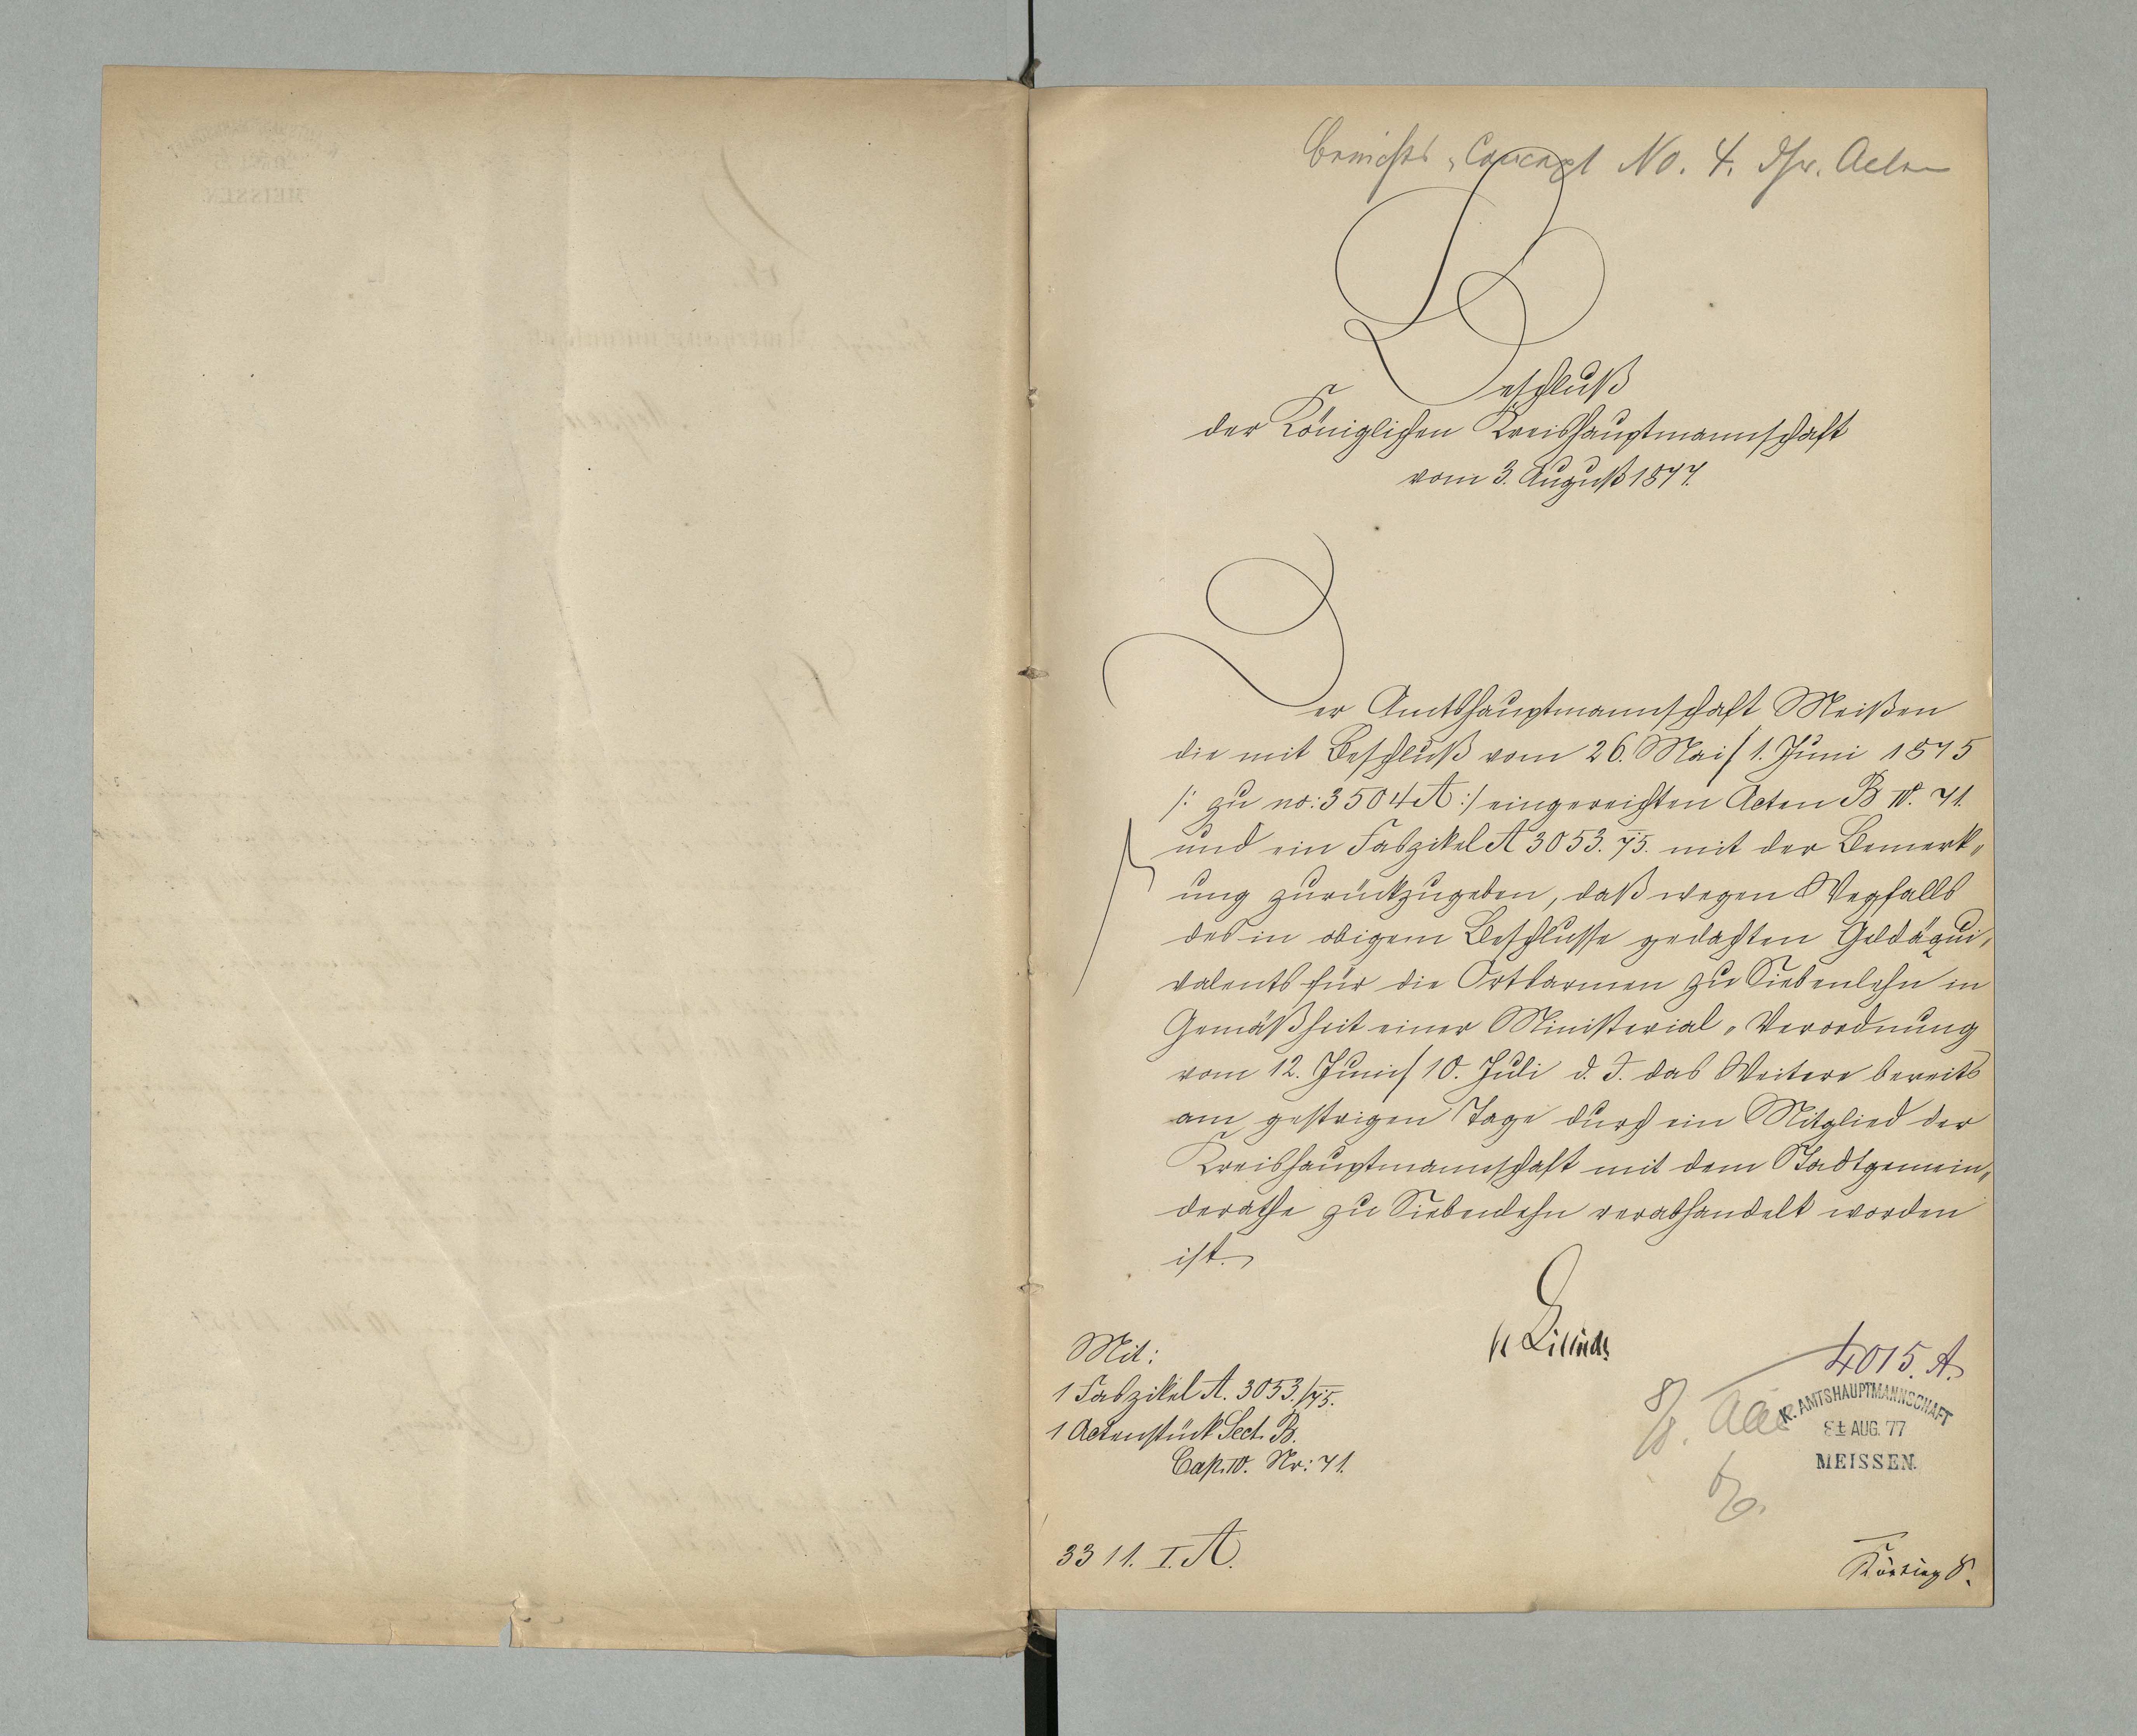 Concept No. 4. dsr. Acten
Beschluß
der Königlichen Kreishauptmannschaft
vom 3. August 1877.
Der Amtshauptmannschaft Meißen
die mit Beschluß vom 26. Mai/1. Juni 1875
/: zu no: 3504 A :/ eingereichten Acten B IV. 71.
und ein Faszikel A 3053. 75. mit der Bemerk„
ung zurückzugeben, daß wegen Wegfalls
des in obigem Beschlusse gedachten Geldäqui„
valents für die Ortsarmen zu Siebenlehn in
Gemäßheit einer Ministerial„Verordnung
vom 12. Juni/10. Juli d. J. das Weitere bereits
am gestrigen Tage durch ein Mitglied der
Kreishauptmannschaft mit dem Stadtgemein„
derathe zu Siebenlehn verabhandelt worden
ist.
Mit:
1 Faszikel A. 3053./75.
1 Actenstück Sect. B.
Cap. IV. Nr: 71.
4015. A.
K. AMTSHAUPTMANNSCHAFT
8 AUG. 77
MEISSEN.
3311. I. A.